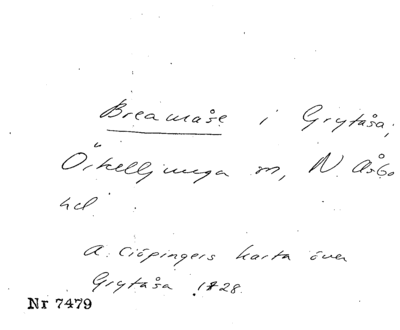 Breamåse i Grytåsa,
Örkelljunga sn, N. Åsbo
hd.
A. Ciöpingers karta över
Grytåsa 1828.
Nr 7479